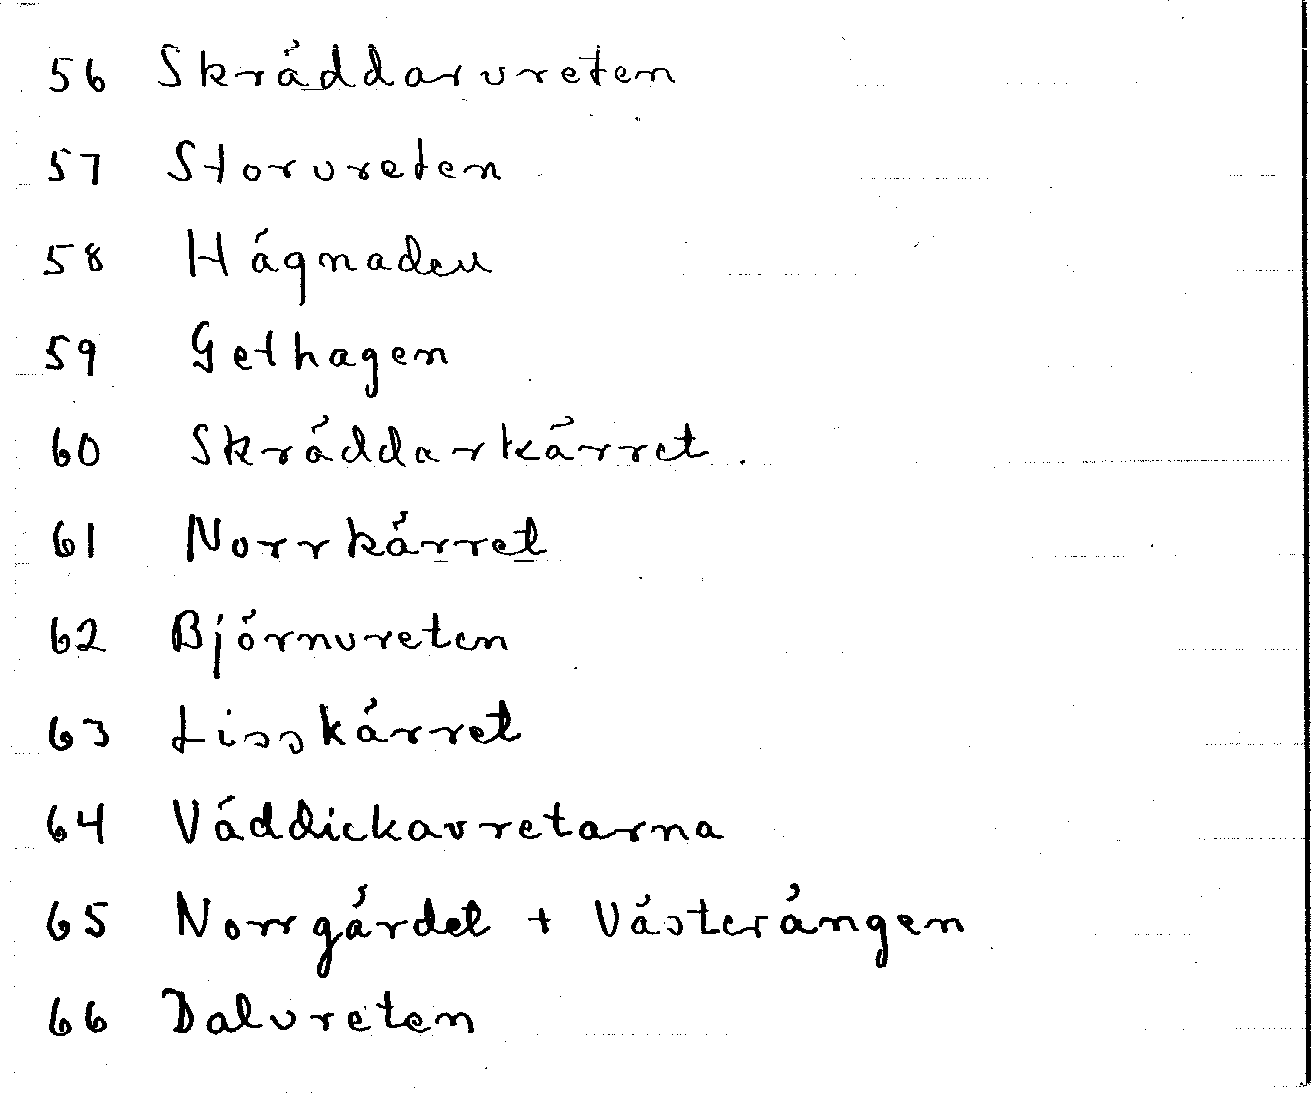 56 Skräddarvreten
57 Storvreten
58 Hägnaden
59 Gethagen
60 Skräddarkärret.
61 Norrkärret
62 Björnvreten
63 Lisskärret
64 Väddickavretarna
65 Norrgärdet + Västerängen
66 Dalvreten